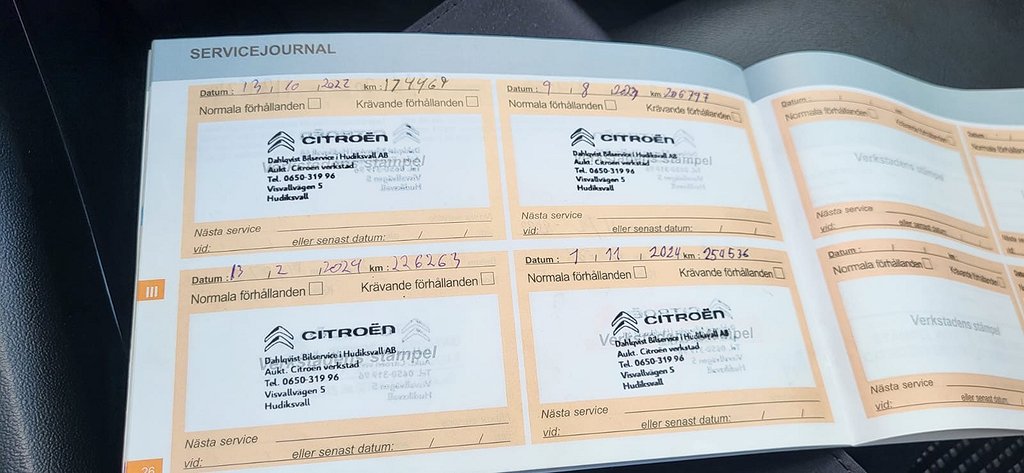 SERVICEJOURNAL
Datum : 13 , 10 , 2022 km : 174469
Normala förhållanden Krävande förhållanden
CITROËN
Dahlqvist Bilservice i Hudiksvall AB
Aukt. Citroën verkstad
Verkstadens stämpel
Tel. 0650-319 96
Visvallvägen 5
Hudiksvall
Nästa service
vid: eller senast datum: / /
Datum : 9 , 8 , km : 206797
Normala förhållanden Krävande förhållanden
CITROËN
Dahlqvist Bilservice i Hudiksvall AB
Aukt. Citroën verkstad
Verkstadens stämpel
Tel. 0650-319 96
Visvallvägen 5
Hudiksvall
Nästa service
vid: eller senast datum: / /
III
Datum : 13 , 2 , 2024 km : 226263
Normala förhållanden Krävande förhållanden
CITROËN
Dahlqvist Bilservice i Hudiksvall AB
Verkstadens stämpel
Aukt. Citroën verkstad
Tel. 0650-319 96
Visvallvägen 5
Hudiksvall
Nästa service
vid: eller senast datum: / /
Datum : 1 , 11 , 2024 km : 254536
Normala förhållanden Krävande förhållanden
CITROËN
Dahlqvist Bilservice i Hudiksvall AB
Verkstadens stämpel
Aukt. Citroën verkstad
Tel. 0650-319 96
Visvallvägen 5
Hudiksvall
Nästa service
vid: eller senast datum: / /
26
Datum : , , km :
Normala förhållanden Krävande förhållanden
Verkstadens stämpel
Nästa service
vid: eller senast datum: / /
Datum :
Normala
Nästa
vid:
Datum : , , km :
Normala förhållanden Krävande förhållanden
Verkstadens stämpel
Nästa service
vid: eller senast datum: / /